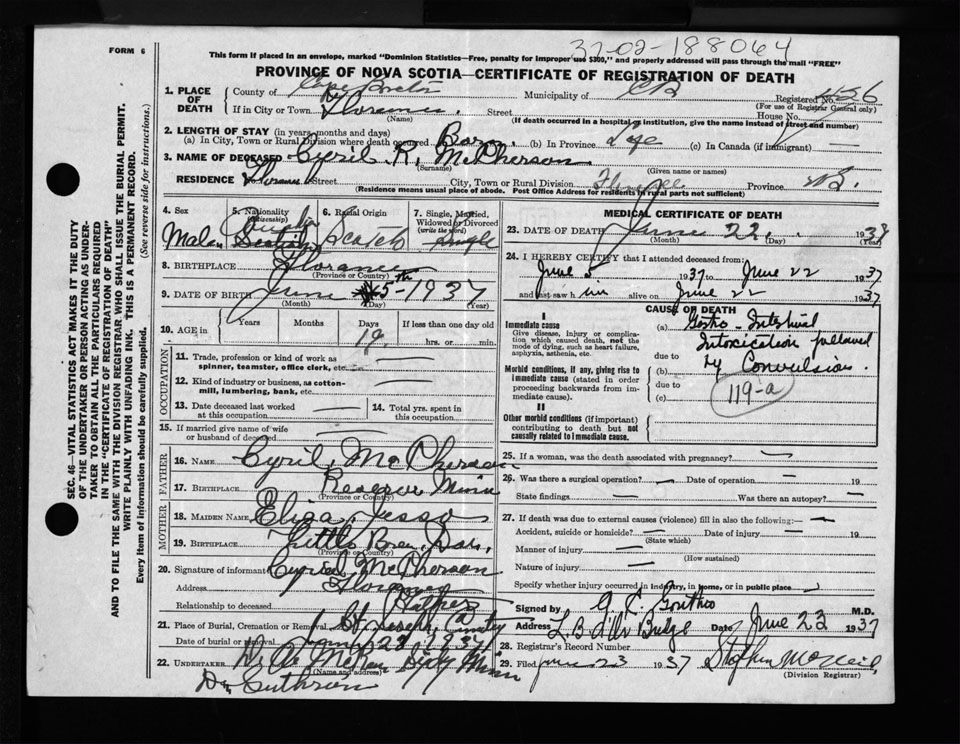 FORM 6
37-02-188064
This form if placed in an envelope, marked "Dominion Statistics—Free, penalty for improper use $300," and properly addressed will pass through the mail "FREE"
PROVINCE OF NOVA SCOTIA—CERTIFICATE OF REGISTRATION OF DEATH
SEC. 46—VITAL STATISTICS ACT MAKES IT THE DUTY
OF THE UNDERTAKER OR PERSON ACTING AS UNDER-
TAKER TO OBTAIN ALL THE PARTICULARS REQUIRED
IN THE "CERTIFICATE OF REGISTRATION OF DEATH"
AND TO FILE THE SAME WITH THE DIVISION REGISTRAR, WHO SHALL ISSUE THE BURIAL PERMIT.
WRITE PLAINLY WITH UNFADING INK. THIS IS A PERMANENT RECORD.
Every item of information should be carefully supplied. (See reverse side for instructions.)
1. PLACE OF DEATH
County of Cape Breton Municipality of CB Registered No.
(For use of Registrar General only)
If in City or Town Florence Street House No.
(Name) (If death occurred in a hospital or institution, give the name instead of street and number)
2. LENGTH OF STAY (in years, months and days)
(a) In City, Town or Rural Division where death occurred (b) In Province Life (c) In Canada (if immigrant) —
3. NAME OF DECEASED Cyril R. McPherson
(Surname) (Given name or names)
RESIDENCE Florence Street City, Town or Rural Division Province
(Residence means usual place of abode. Post Office Address for residents in rural parts not sufficient)
4. Sex Male
5. Nationality (Citizenship)
6. Racial Origin Scotch
7. Single, Married, Widowed or Divorced (write the word) Single
8. BIRTHPLACE Florence
(Province or Country)
9. DATE OF BIRTH June 5th 1937
(Month) (Day) (Year)
10. AGE in Years Months Days If less than one day old
hrs. or min.
OCCUPATION
11. Trade, profession or kind of work as spinner, teamster, office clerk, etc. —
12. Kind of industry or business, as cotton-mill, lumbering, bank, etc. —
13. Date deceased last worked at this occupation —
14. Total yrs. spent in this occupation —
15. If married give name of wife or husband of deceased —
FATHER
16. NAME Cyril McPherson
17. BIRTHPLACE Reserve Mines
(Province or Country)
MOTHER
18. MAIDEN NAME Eliza Jesso
19. BIRTHPLACE Little Bras Dor.
(Province or Country)
20. Signature of informant Cyril McPherson
Address Florence
Relationship to deceased Father
21. Place of Burial, Cremation or Removal St Joseph
Date of burial or removal June 23 1937
22. UNDERTAKER
(Name and address)
MEDICAL CERTIFICATE OF DEATH
23. DATE OF DEATH June 22 1937
(Month) (Day) (Year)
24. I HEREBY CERTIFY that I attended deceased from:
June 5 1937 to June 22 1937
and last saw him alive on June 22 1937
CAUSE OF DEATH
I
Immediate cause
Give disease, injury or complication which caused death, not the mode of dying, such as heart failure, asphyxia, asthenia, etc.
(a) Gastro-Intestinal
Intoxication followed
due to
(b) by Convulsions.
due to
(c) 119-a
Morbid conditions, if any, giving rise to immediate cause (stated in order proceeding backwards from immediate cause).
II
Other morbid conditions (if important) contributing to death but not causally related to immediate cause.
25. If a woman, was the death associated with pregnancy? —
26. Was there a surgical operation? — Date of operation — 19 —
State findings — Was there an autopsy? —
27. If death was due to external causes (violence) fill in also the following:—
Accident, suicide or homicide? — Date of injury — 19 —
(State which)
Manner of injury —
(How sustained)
Nature of injury —
Specify whether injury occurred in industry, in home, or in public place
Signed by M.D.
Address Date June 23 1937
28. Registrar's Record Number
29. Filed June 23 1937 Stephen McNeil
(Division Registrar)